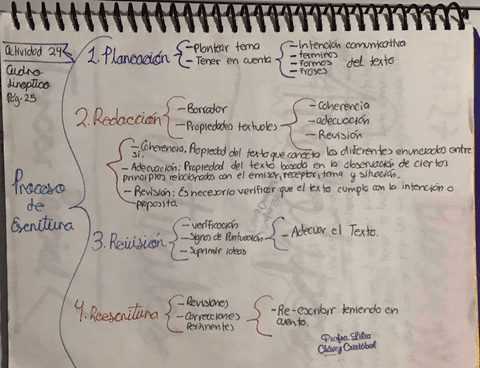 Actividad 24
Cuadro
sinoptico
Pág. 25
Proceso
de
Escritura
1. Planeación
- Plantear tema
- Tener en cuenta
- Intención comunicativa
- terminos
- Formas del texto
- Frases
2. Redacción
- Borrador
- Propiedades textuales
- Coherencia
- adecuación
- Revisión
- Coherencia: Propiedad del texto que conecta los diferentes enunciados entre
sí.
- Adecuación: Propiedad del texto basada en la observación de ciertos
principios relacionado con el emisor, receptor, tema y situación.
- Revisión: Es necesario verificar que el texto cumpla con la intención o
proposito.
3. Revisión
- verificación
- Signos de Puntuación
- Suprimir ideas
- Adecuar el Texto.
4. Reescritura
- Revisiones
- Correcciones
Pertinentes
- Re-escribir teniendo en
cuenta.
Profra. Lilia
Chávez Cristóbal